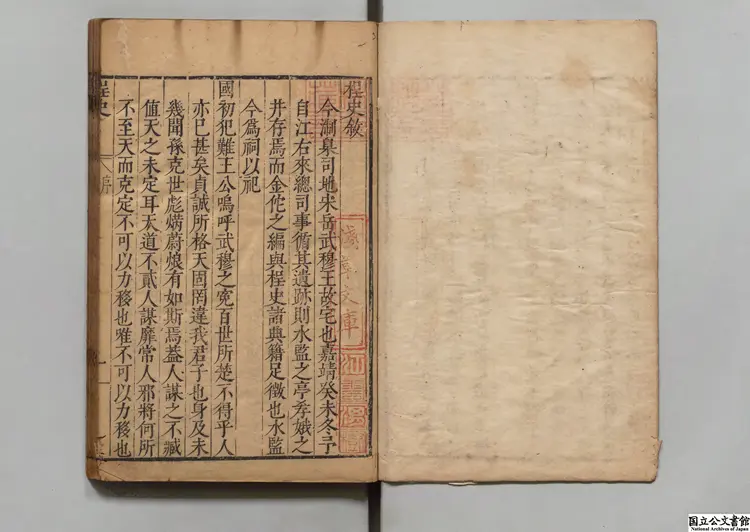 桯史敘
今澗臬司地宋岳武穆王故宅也嘉靖癸未冬予
自江右來總司事循其遺跡則水監之亭孝娥之
井存焉而金佗之編與桯史諸典籍足徵也水監
今爲祠以祀
國初犯難王公嗚呼武穆之冤百世所楚不得乎人
亦已甚矣貞誠所格天固罔違我君子也身及未
幾聞孫克世彪炳蔚煥有如斯焉葢人謀之不臧
值天之未定耳天道不貳人謀靡常人邪將何所
不至天而克定不可以力移也唯不可以力移也
桯史
序
一
淺草文庫
国立公文書館
National Archives of Japan